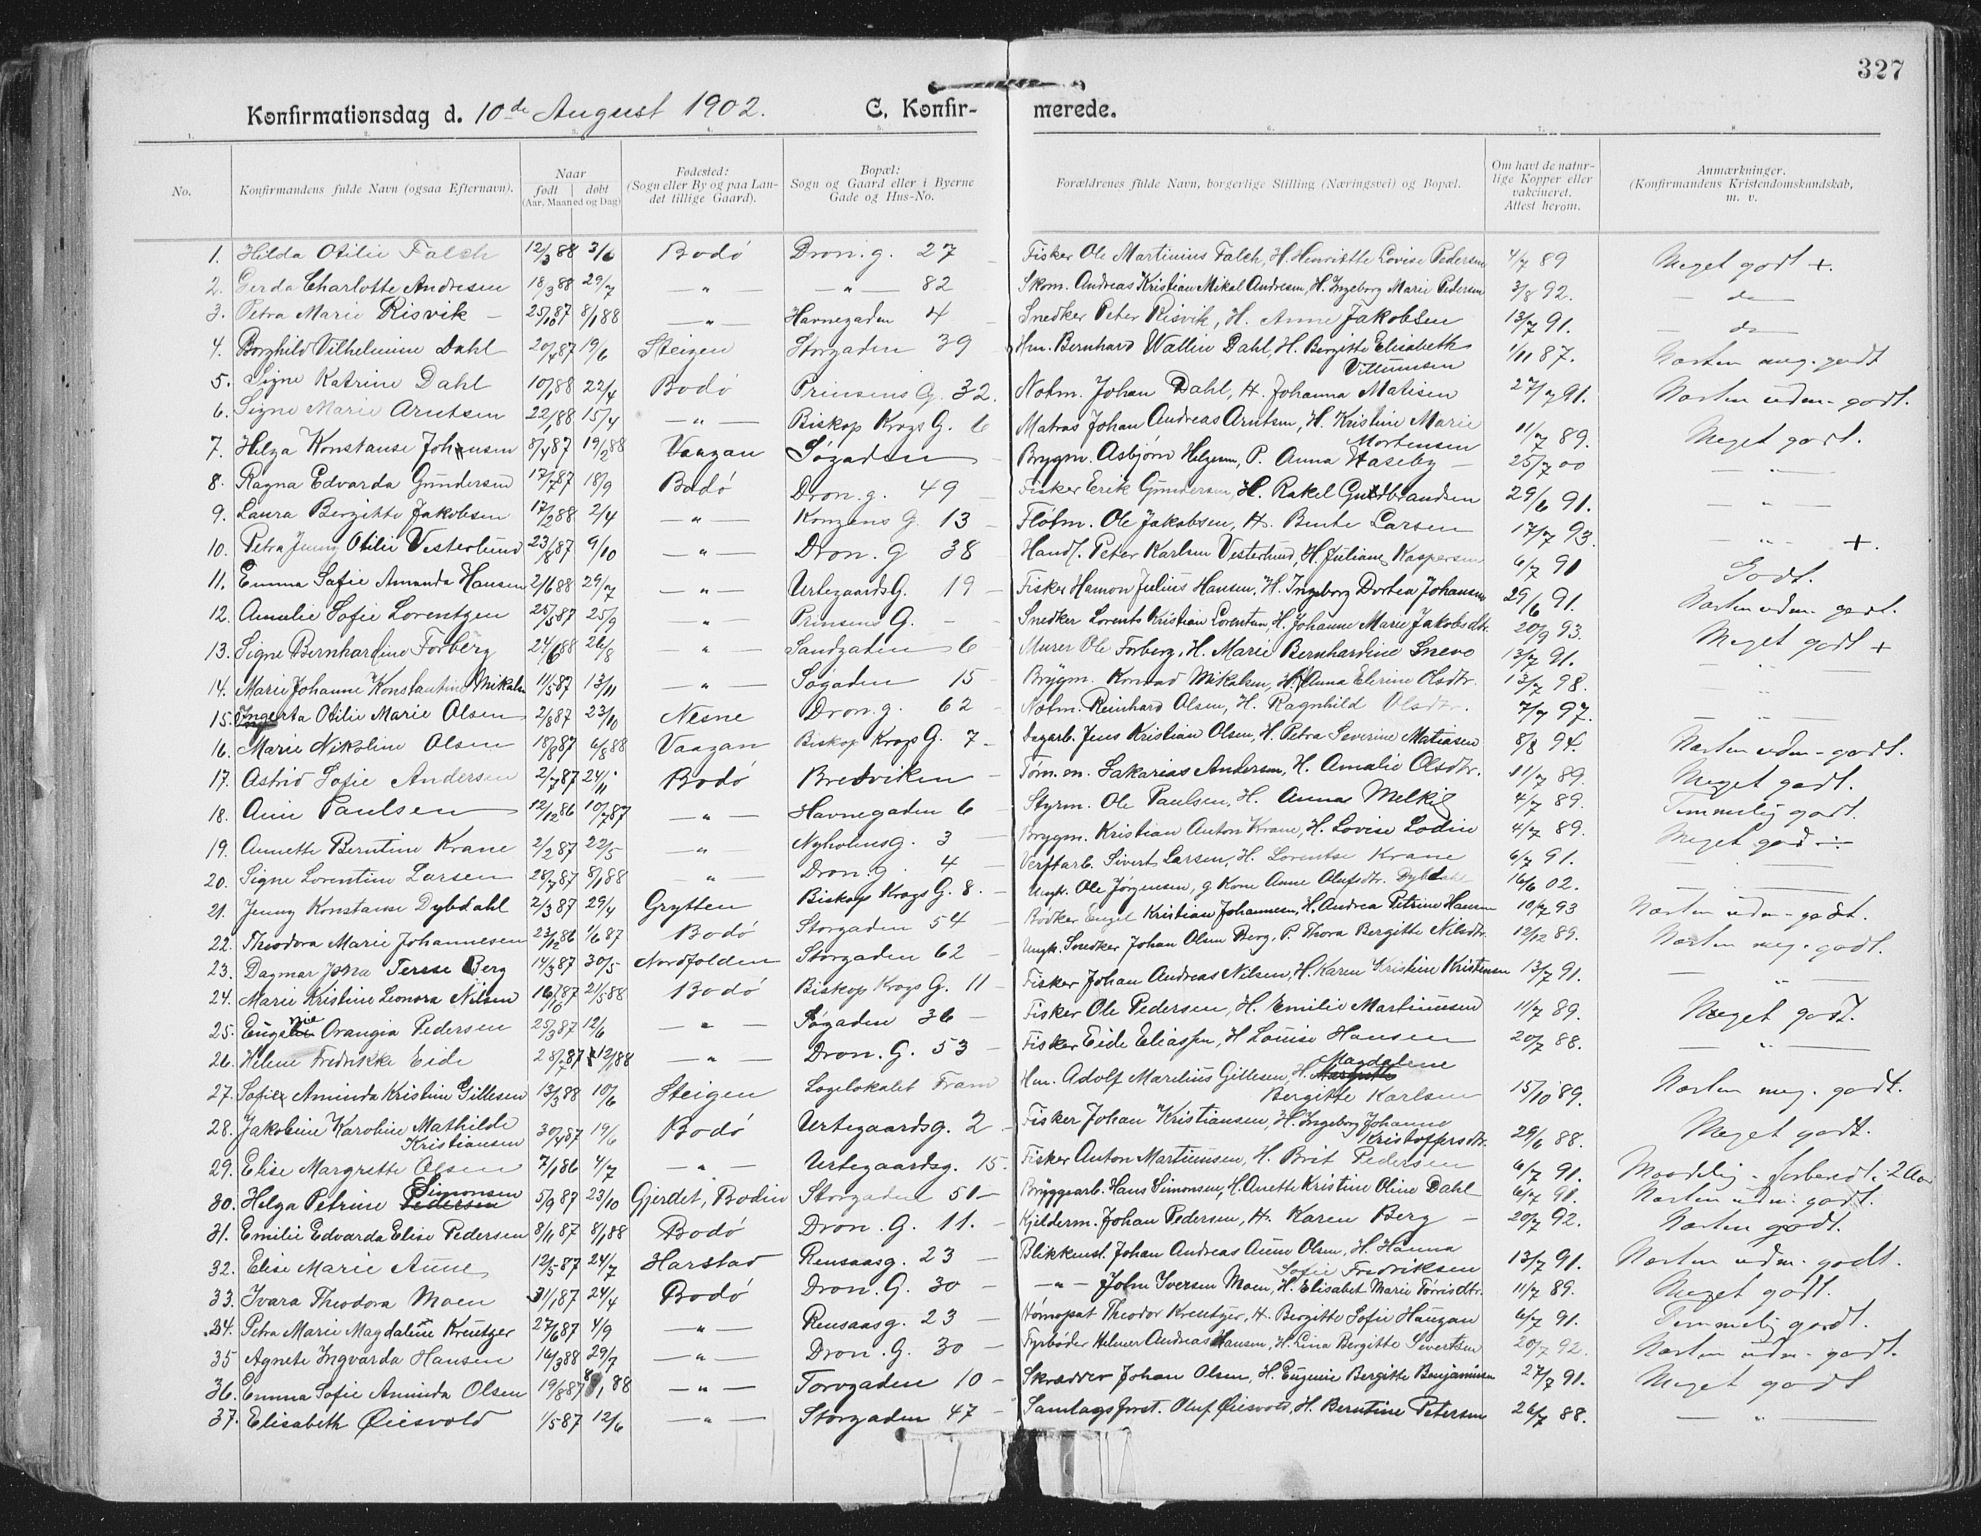 327
Konfirmationsdag d. 10de August 1902. C. Konfir- merede.
1. 2. 3. 4. 5. 6. 7. 8.
No. Konfirmandens fulde Navn (ogsaa Efternavn). Naar født døbt (Aar, Maaned og Dag) Fødested: (Sogn eller By og paa Landet tillige Gaard). Bopæl: Sogn og Gaard eller i Byerne Gade og Hus-No. Forældrenes fulde Navn, borgerlige Stilling (Næringsvei) og Bopæl. Om havt de naturlige Kopper eller vakcineret. Attest herom. Anmærkninger. (Konfirmandens Kristendomskundskab, m. v.
1. Hilda Otilie Falch 12/3 88 3/6 Bodö Dron.g. 27 Fisker Ole Martinius Falch, H. Henriette Lovise Pedersen 4/7 89 Meget godt +.
2. Gerda Charlotte Andresen 18/3 88 29/7 —"— —"— 82 Skom. Andreas Kristian Mikal Andresen, H. Ingeborg Marie Pedersen 3/8 92. — do —
3. Petra Marie Risvik — 25/10 87 8/1 88 —"— Havnegaden 4 Snedker Peter Risvik, H. Anne Jakobsen 13/7 91. — do —
4. Borghild Vilhelmine Dahl 20/4 87 19/6 Steigen Storgaden 39 Hm. Bernhard Wallin Dahl, H. Bergitte Elisabeth Villumsen 1/11 87. Næsten meg. godt
5. Signe Katrine Dahl 10/1 88 22/4 Bodö Prinsens G. 32. Notm. Johan Dahl, H. Johanna Matisen 27/7 91. Næsten udm. godt.
6. Signe Marie Arntsen 22/1 88 15/4 —"— Biskop Krogs G. 6 Matros Johan Andreas Arntsen, H. Kristine Marie Mortensen 11/7 89. Meget godt.
7. Helga Konstanse Johansen 8/4 87 19/2 88 Vaagan Søgaden Brygm. Asbjørn Helgesen, P. Anna Haseby — 25/7 00 — " —
8. Ragna Edvarda Gundersen 17/7 87 18/9 Bodö Dron.g. 49 Fisker Erik Gundersen, H. Rakel Guldbrandsen 29/6 91. "
9. Laura Bergitte Jakobsen 17/2 88 2/4 —"— Kongens G. 13 — Fløtm. Ole Jakobsen, H. Bente Larsen 17/7 93. — " — +.
10. Petra Jenny Otilie Vesterlund 23/8 87 9/10 —"— Dron.g 38 Handl. Peter Karlsen Vesterlund, H. Juliane Kaspersen 6/7 91 Godt.
11. Emma Sofie Amanda Hansen 2/6 88 29/7 —"— Urtegaards G. 19 — Fisker Hamon Julius Hansen, H. Ingeborg Dortea Johansen 29/6 91. Næsten udm. godt.
12. Amalie Sofie Lorentzen 25/5 87 25/9 " Prinsens G. — Snedker Lorents Kristian Lorentsen, H. Johanne Marie Jakobsdtr. 20/9 93. Meget godt +
13. Signe Bernhardine Forberg 24/6 88 26/8 —"— Sandgaden 6 Murer Ole Forberg, H. Marie Bernhardine Snevo 13/7 91. "
14. Marie Johanne Konstantine Mikalsn 11/5 87 13/11 —"— Søgaden 15 Brygm. Konrad Mikalsen, H. Anna Elerine Olsdtr. 13/7 98. "
15. Ingerta Otilie Marie Olsen 2/8 87 23/10 Nesne Dron.g. 62 Notm. Reinhard Olsen, H. Ragnhild Olsdtr. 7/7 97. — " —
16. Marie Nikoline Olsen 18/8 87 6/8 88 Vaagan Biskop Krogs G. 7 Dagarb. Jens Kristian Olsen, H. Petra Severine Matiasen 8/8 94. Næsten udm. godt.
17. Astrid Sofie Andersen 2/7 87 24/11 Bodö Bredviken Tøm.m. Sakarias Andersen, H. Amalie Olsdtr. 11/7 89. Meget godt.
18. Aini Paulsen 12/12 86 10/7 87 —"— Havnegaden 6 Styrm. Ole Paulsen, H. Anna Melkil 4/7 89. Temmelig godt.
19. Annette Berntine Krane 2/2 87 22/5 " Nyholmsg. 3 Brygm. Kristian Anton Krane, H. Lovise Lodin 4/7 89. Meget god—
20. Signe Lorentine Larsen 28/7 87 8/1 88 " Dron.g. 4 Verftarb. Sivert Larsen, H. Lorentse Krane 6/7 91. —
21. Jenny Konstanse Dybdahl 2/3 87 29/4 Grytten Biskop Krogs G. 8. Ungk. Ole Jørgensen, g. Kone Anne Olufsdtr. Dybdahl 16/6 02. —
22. Theodora Marie Johannesen 23/12 86 1/6 87 Bodö Storgaden 54 Bødker Engel Kristian Johannesen, H. Andrea Petrine Hansen 10/7 93 Næsten udm. godt.
23. Dagmar Jona Terese Berg 14/3 87 30/5 Nordfolden Storgaden 62 Ungk. Snedker Johan Olsen Berg, P. Thora Bergitte Nilsdtr. 12/12 89. Næsten meg. godt.
24. Marie Kristine Leonora Nilsen 16/10 87 21/5 88 Bodö Biskop Krogs G. 11 Fisker Johan Andreas Nilsen, H. Karen Kristine Kristensen 13/7 91. — " —
25. Eugenie Orangia Pedersen 25/3 87 12/6 —"— Søgaden 36 Fisker Ole Pedersen, H. Emilie Martinussen 11/7 89. Meget godt.
26. Helene Fredrikke Eide 28/7 87 12/1 88 —"— Dron.G. 53 Fisker Eide Eliassen, H Louise Hansen 20/7 88. — " —
27. Sofie Aminda Kristine Gillesen 13/3 88 10/6 Steigen Logelokalet Fram Hm. Adolf Marelius Gillesen, H. Magdalene Bergitte Karlsen 15/10 89. Næsten meg. godt.
28. Jakobine Karoline Mathilde Kristiansen 30/4 87 19/6 Bodö Urtegaardsg. 2 Fisker Johan Kristiansen, H. Ingeborg Johanne Kristoffersdtr. 29/6 88. Meget godt.
29. Elise Margrette Olsen 7/1 86 4/7 —"— Urtegaardsg. 15. Fisker Anton Martinusen, H. Brit Pedersen 6/7 91. Maadelig - forberedt i 2 Aar
30. Helga Petrine Pedersen Simonsen 5/9 87 23/10 Gjerdet, Bodin Storgaden 51 — Bryggearb. Hans Simonsen, H. Anette Kristine Oline Dahl 6/7 91. Næsten udm. godt.
31. Emilie Edvarda Elise Pedersen 8/11 87 8/1 88 Bodö Dron.G. 11. Kjelderm. Johan Pedersen, H. Karen Berg — 20/7 92. Næsten godt.
32. Elise Marie Aune 12/5 87 24/7 Harstad Rensaasg. 23 Blikkensl. Johan Andreas Aune Olsen, H. Hanna Sofie Fredriksen 13/7 91. Næsten udm. godt.
33. Ivara Theodora Moen 31/1 87 24/4 Bodö Dron.G. 30 —"— John Iversen Moen, H. Elisabet Marie Tørrisdtr. 11/7 89. Meget godt.
34. Petra Marie Magdaline Kreutzer 27/6 87 4/9 —"— Rensaasg. 23 Hømopat Theodor Kreutzer, H. Bergitte Sofie Haugan 6/7 91. Temmelig godt.
35 Agnete Ingvarda Hansen 16/3 88 29/7 —"— Dron.G. 30 Fyrbøder Helmer Andreas Hansen, H. Lina Bergitte Sivertsen 20/7 92. Næsten udm. godt.
36. Emma Sofie Aminda Olsen 19/8 87 8/1 88 —"— Torvgaden 10 Skrædder Johan Olsen, H. Eugenie Bergitte Benjaminsen 27/7 91. Meget godt
37. Elisabeth Øiesvold 1/5 87 12/6 —"— Storgaden 47 Samlagsforst. Oluf Øiesvold, H. Berntine Petersen 26/7 88. — " —